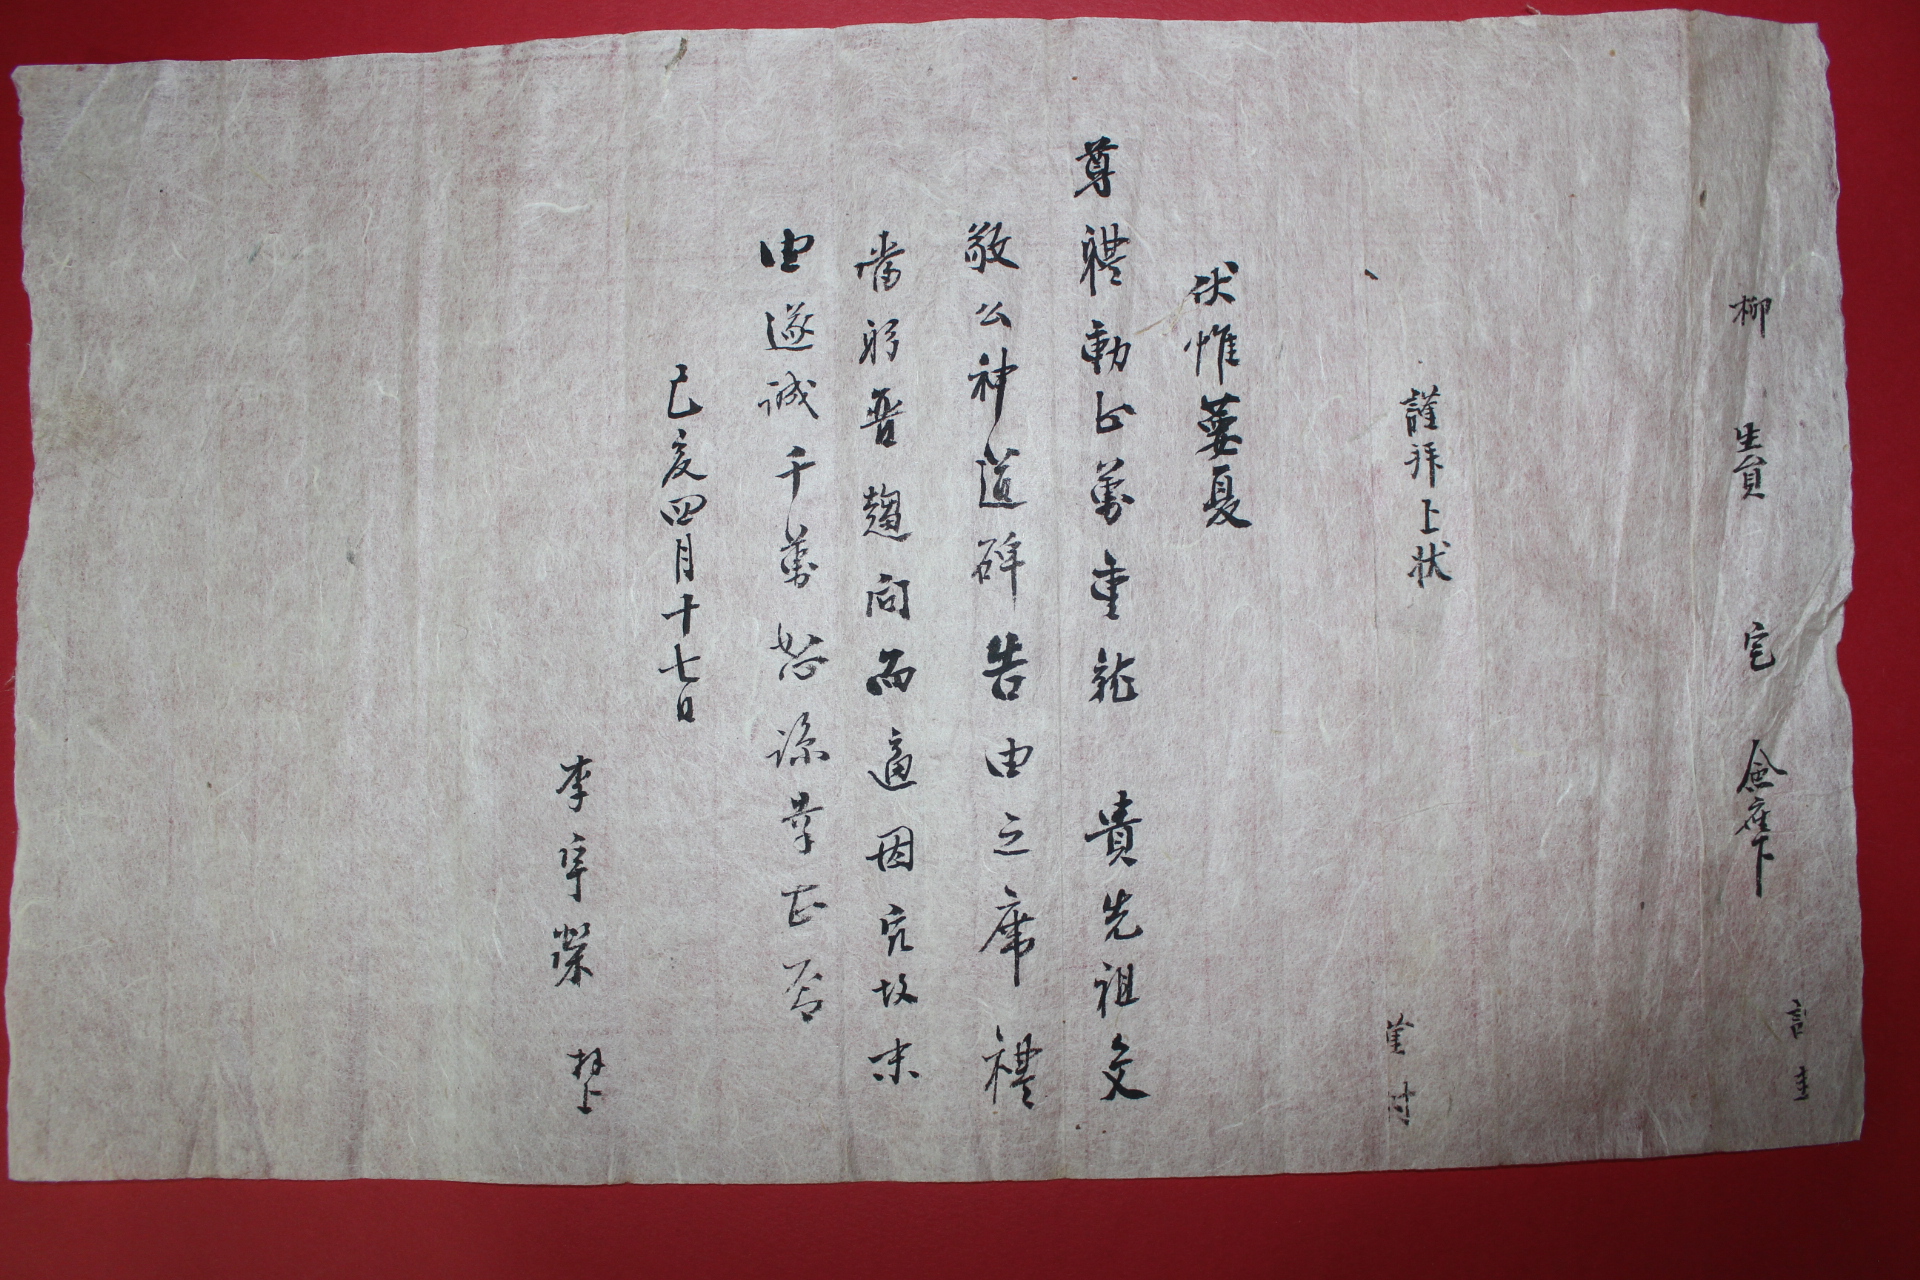 柳 生員 宅 僉座下
謹拜上狀
謹封
伏惟孟夏
尊禮動止萬重就 貴先祖文
敬公神道碑告由之席禮
當躬晋趨向而適因冗故未
由遂誠千萬恕諒幸甚
己亥四月十七日
李宇榮 拜上